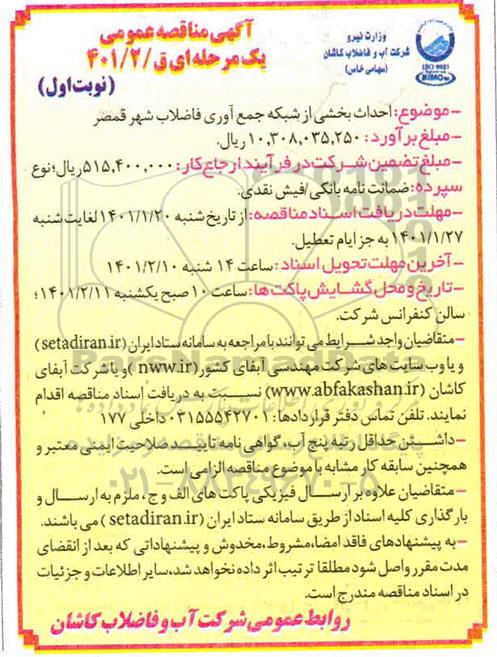 آگهی مناقصه عمومی
یک مرحله‌ای ق/۴۰۱/۲
(نوبت اول)
وزارت نیرو
شرکت آب و فاضلاب کاشان
(سهامی خاص)
ISO 9001
-موضوع: احداث بخشی از شبکه جمع آوری فاضلاب شهر قمصر
-مبلغ برآورد: ۱۰,۳۰۸,۰۳۵,۲۵۰ ریال.
-مبلغ تضمین شرکت در فرآیند ارجاع کار: ۵۱۵,۴۰۰,۰۰۰ ریال؛ نوع
سپرده: ضمانت نامه بانکی/فیش نقدی.
-مهلت دریافت اسناد مناقصه: از تاریخ شنبه ۱۴۰۱/۱/۲۰ لغایت شنبه
۱۴۰۱/۱/۲۷ به جز ایام تعطیل.
-آخرین مهلت تحویل اسناد: ساعت ۱۴ شنبه ۱۴۰۱/۲/۱۰
-تاریخ و محل گشایش پاکت ها: ساعت ۱۰ صبح یکشنبه ۱۴۰۱/۲/۱۱؛
سالن کنفرانس شرکت.
-متقاضیان واجد شرایط می توانند با مراجعه به سامانه ستاد ایران (setadiran.ir)
و یا وب سایت های شرکت مهندسی آبفای کشور (nww.ir) و یا شرکت آبفای
کاشان (www.abfakashan.ir) نسبت به دریافت اسناد مناقصه اقدام
نمایند. تلفن تماس دفتر قراردادها: ۰۳۱۵۵۵۴۲۷۰۱ داخلی ۱۷۷
-داشتن حداقل رتبه پنج آب، گواهی نامه تایید صلاحیت ایمنی معتبر و
همچنین سابقه کار مشابه با موضوع مناقصه الزامی است.
-متقاضیان علاوه بر ارسال فیزیکی پاکت های الف و ج، ملزم به ارسال و
بارگذاری کلیه اسناد از طریق سامانه ستاد ایران (setadiran.ir) می باشند.
-به پیشنهادهای فاقد امضا، مشروط، مخدوش و پیشنهاداتی که بعد از انقضای
مدت مقرر واصل شود مطلقا ترتیب اثر داده نخواهد شد، سایر اطلاعات و جزئیات
در اسناد مناقصه مندرج است.
روابط عمومی شرکت آب و فاضلاب کاشان
ParsNamadData
۰۲۱-۸۸۳۴۹۶۷۰-۵